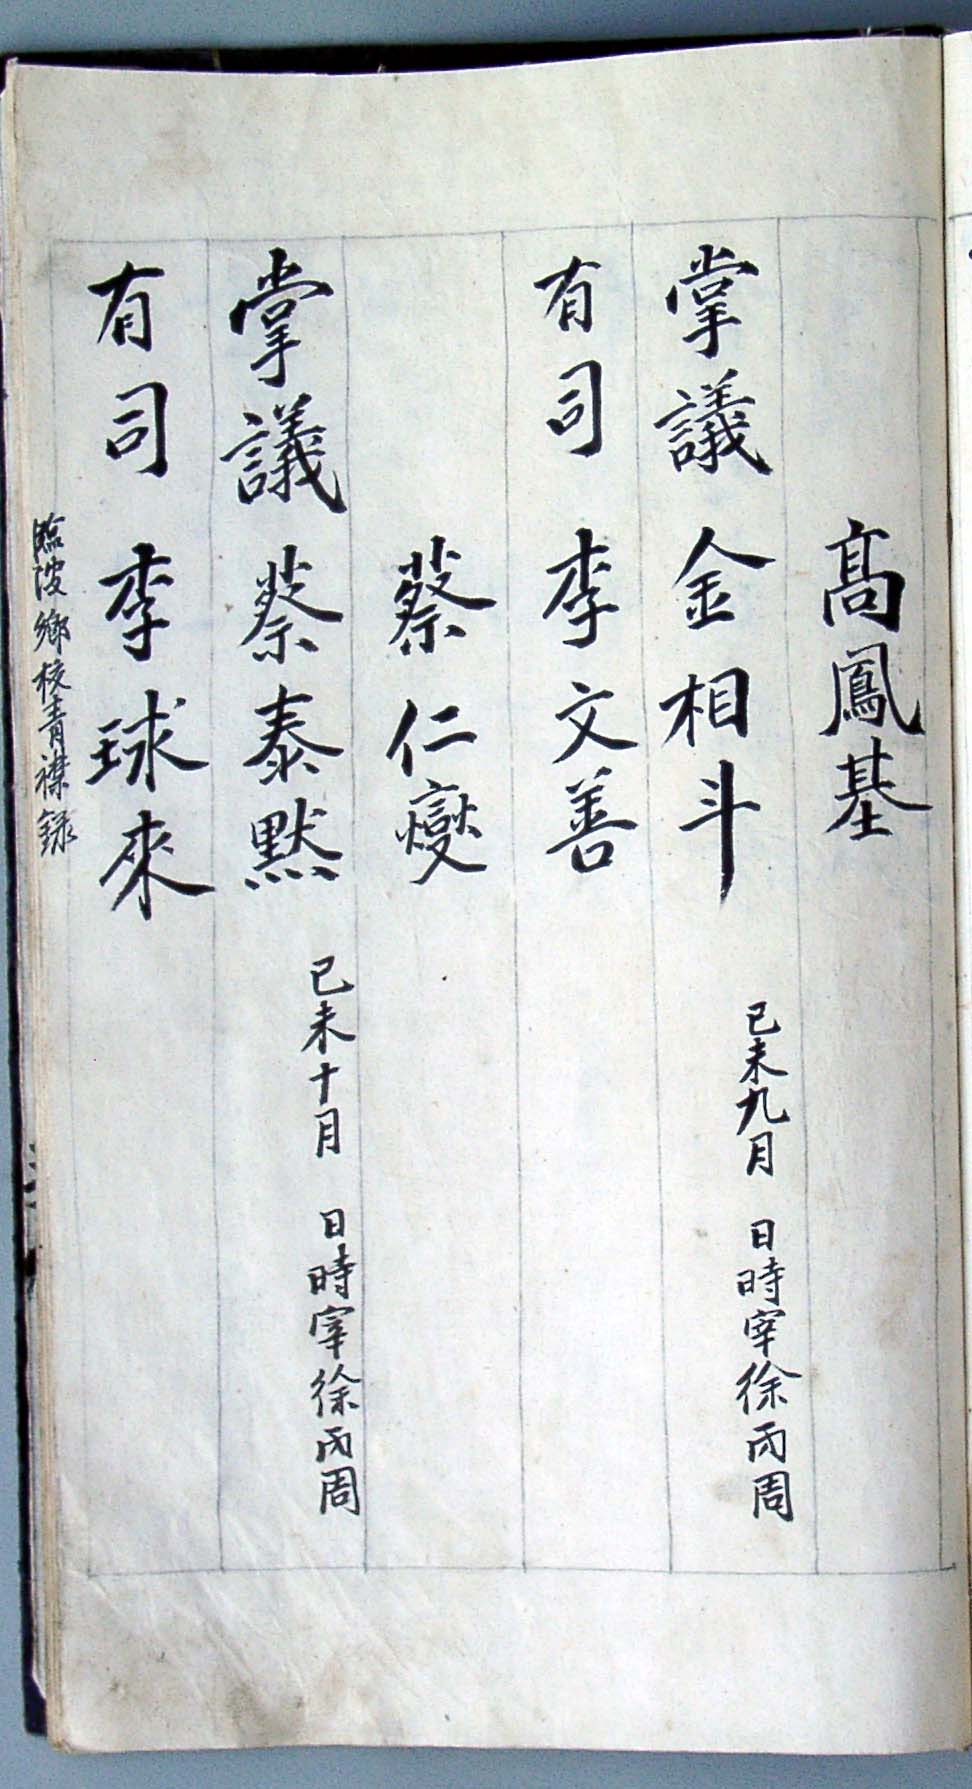 高鳳基
掌議 金相斗 己未九月 日時宰徐丙周
有司 李文善
蔡仁燮
掌議 蔡泰默 己未十月 日時宰徐丙周
有司 李球來
臨陂鄉校青襟錄